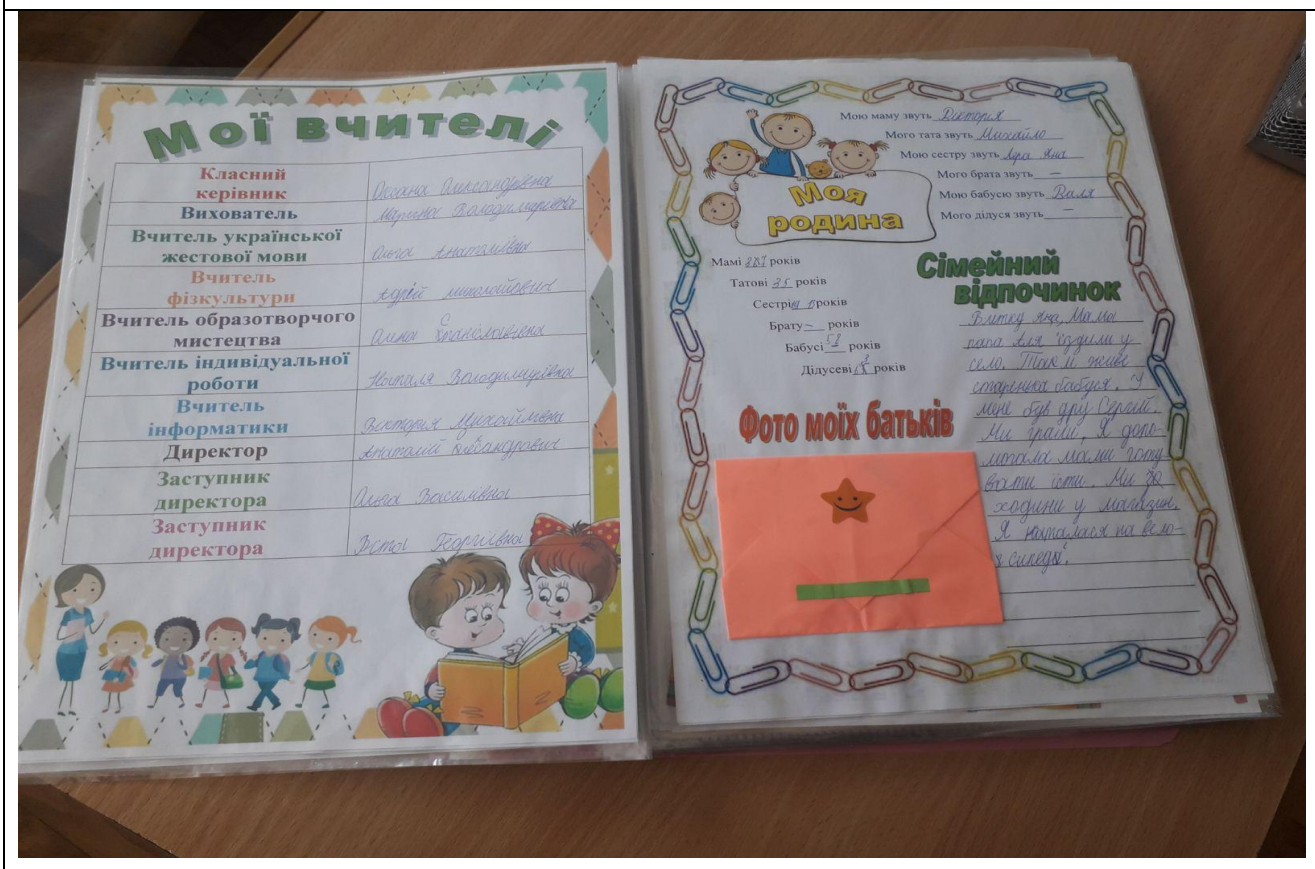 Мої вчителі
Класний
керівник
Оксана Олександрівна
Вихователь
Марина Володимирівна
Вчитель української
жестової мови
Ольга Анатоліївна
Вчитель
фізкультури
Вчитель образотворчого
мистецтва
Станіславівна
Вчитель індивідуальної
роботи
Наталя Володимирівна
Вчитель
інформатики
Вікторія Михайлівна
Директор
Анатолій
Заступник
директора
Ольга Василівна
Заступник
директора
Георгіївна
Моя
родина
Мою маму звуть Вікторія
Мого тата звуть Михайло
Мою сестру звуть Яна
Мого брата звуть –
Мою бабусю звуть Валя
Мого дідуся звуть –
Мамі років
Татові 35 років
Сестрі років
Брату – років
Бабусі 58 років
Дідусеві років
Фото моїх батьків
Сімейний
відпочинок
Яна, Мама
папа Аля їздили у
село. Там живе
старенька бабуся. У
мене був дру Сергій.
Ми грали. Я допо-
могала мами готу
вати їсти. Ми
ходини у магазин.
Я каталася на вело-
сипеді.